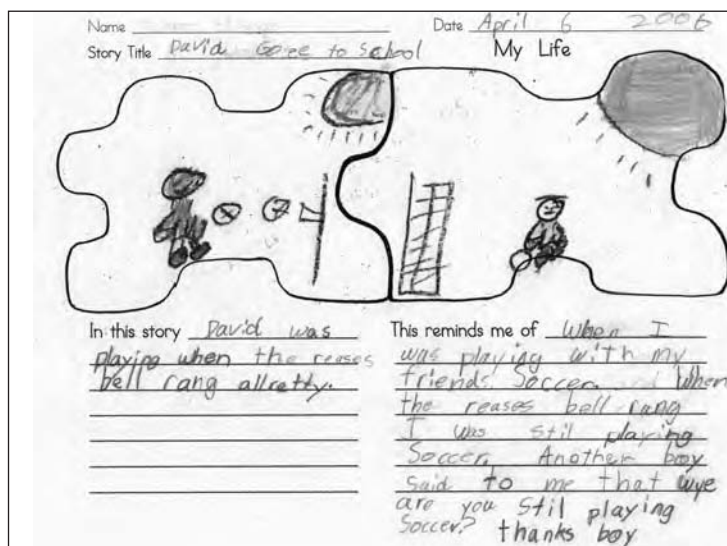 Name
Date April 6 2006
Story Title David Goee to School
My Life
In this story David was
playing when the reases
bell rang allretty.
This reminds me of When I
was playing with my
friends. Soccer. and When
the reases bell rang
I was stil playing
Soccer. Another boy
said to me that wye
are you stil playing
Soccer? thanks boy